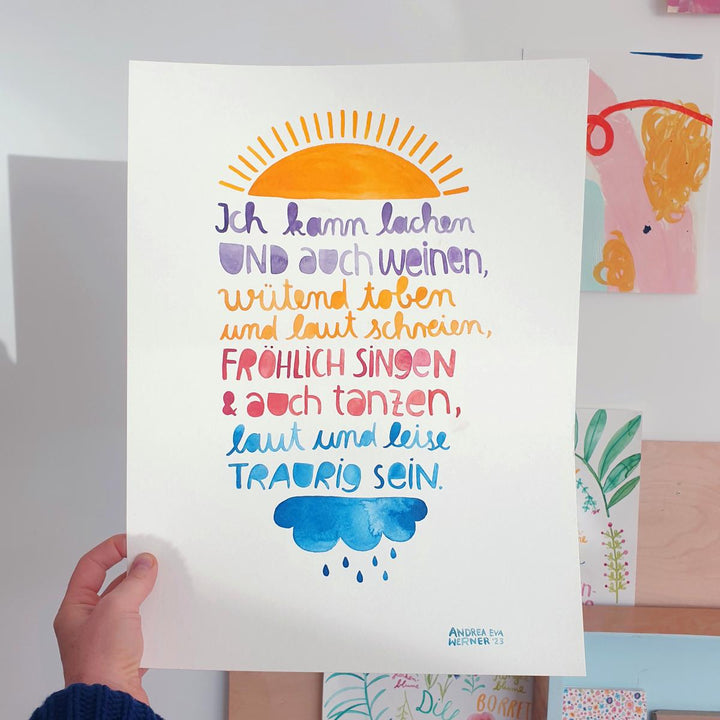 Ich kann lachen
UND auch weinen,
wütend toben
und laut schreien,
FRÖHLICH SINGEN
& auch tanzen,
laut und leise
TRAURIG SEIN.
ANDREA EVA
WERNER '23
Dill
BORRET